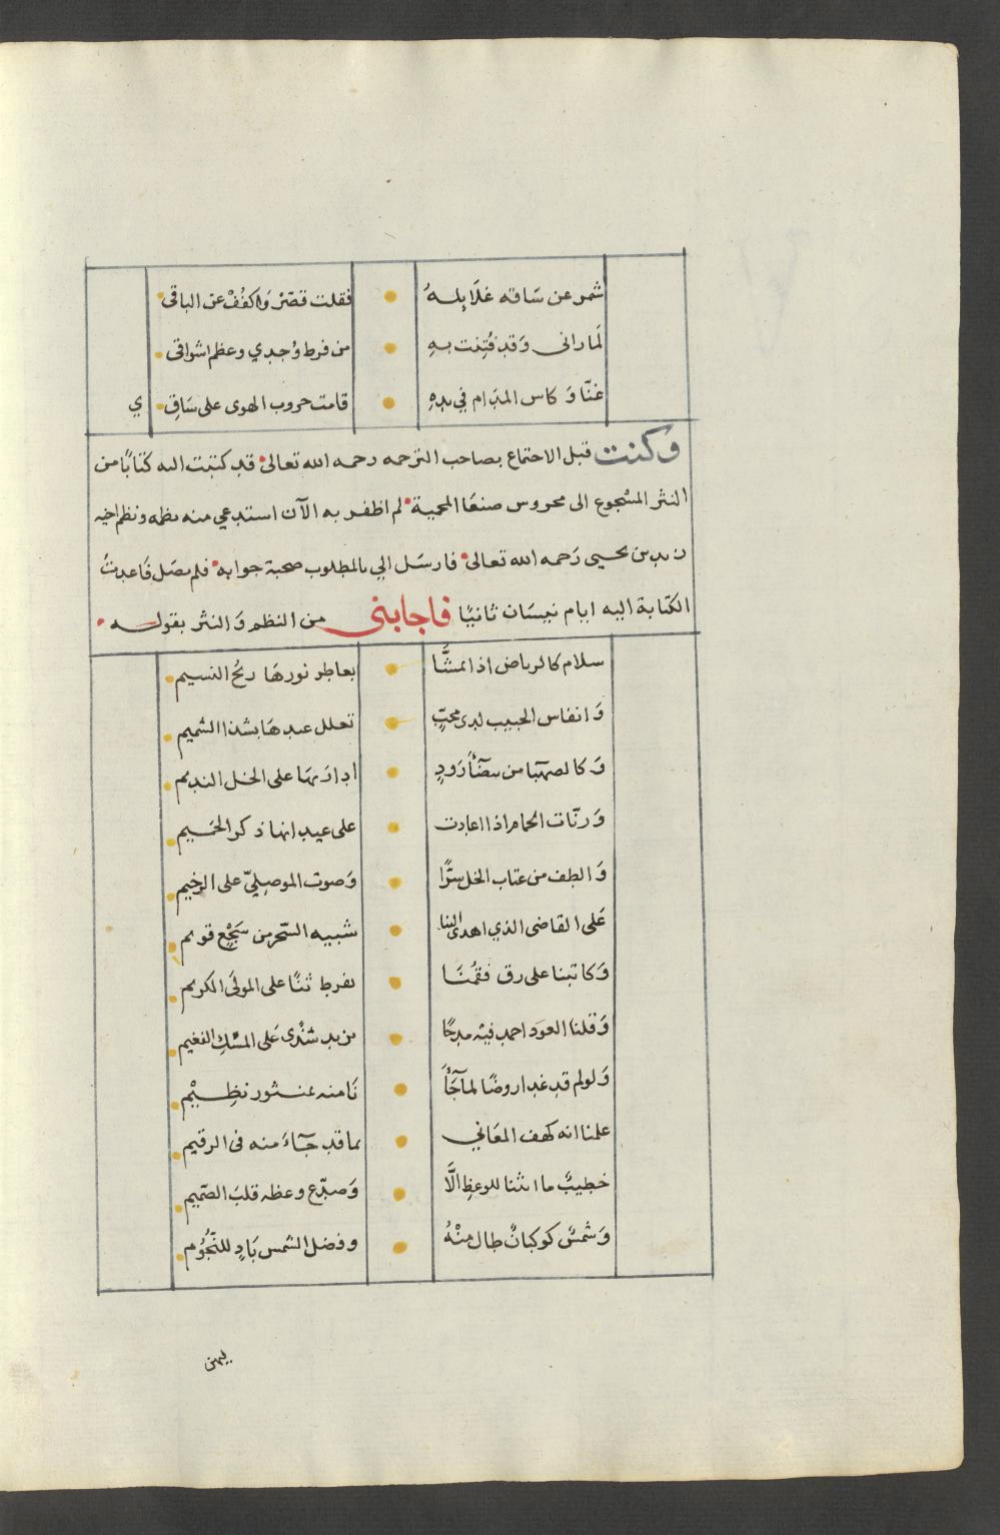 شمر عن سَاقه غلَايِلهُ فقلت قصّرْ وَاكفُفْ عن الباقى
لَما رانى وَقد فُتِنت بهِ من فرط وُجدي وعظم اشواقى
غنّا وَ كاس المدَام في يدهِ قامت حروب الهوى على سَاقِ ي
وكنت قبل الاجتماع بصاحب الترجمه رحمه الله تعالى قد كتبت اليه كتابًا من
النثر المسْجوع الى محروس صنعَا المحمية لم اظفر به الآن استدعي منه نظمه ونظم اخيه
زيد بن يحيى رَحمه الله تعالى فارسَل الي بالمطلوب صحبة جوابه فلم يصَل فَاعدتُ
الكتابة اليه ايام نيسَان ثانيًا فاجابنى من النظم وَالنثر بقوله
سلام كالرياض اذا تمشَّا بعاطر نورهَا ريْح النسيم
وَانفاس الحبيب لدى محبٍّ تعلل عندهَا بشذا الشميم
وَكالصهبَا من بيضَآ رَودٍ ادارَتهَا على الخل النديم
وَرنّات الحمام اذا اعادت على عيدانها ذكر الحميم
وَالطف من عتاب الخل سرًّا وَصوت الموصِليّ على الرخيم
عَلى القاضى الذي اهدى الينا شبيه السّحر من سَجْعٍ قويم
وَكاتبنا على رق فقمْنَا بفرط ثنًا على المولَى الكريم
وَقلنا العوَد احمد فيْه مدحًا يزيد شذًى عَلى المسْكِ الفغيم
وَلو لم قد غدا روضًا لما جَآ نَا منه بمنثور نظِيْم
علمنا انه كهف المعَاني بما قد جَآءَ منه فى الرقيم
خطيبٌ ما انثنا للوعظِ الَّا وَصدّع وعظه قلبَ الصّميم
وَشمسٌ كوكبانٌ طال منْهُ وفضل الشمس بَادٍ للنّجُوم
يمنى